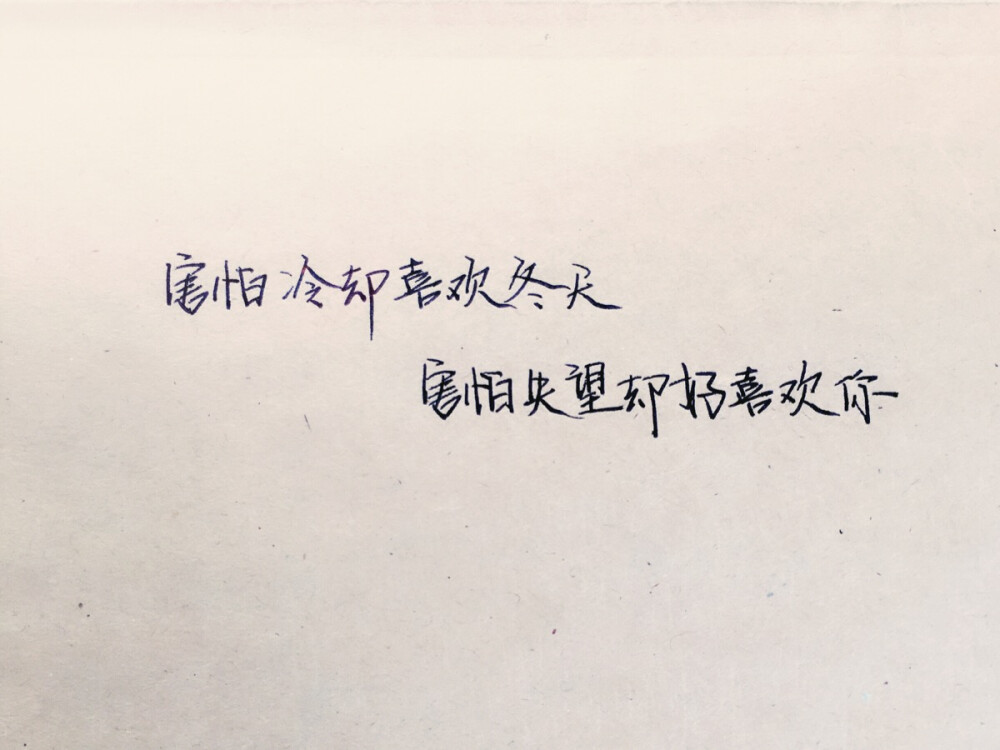 害怕冷却喜欢冬天
害怕失望却好喜欢你